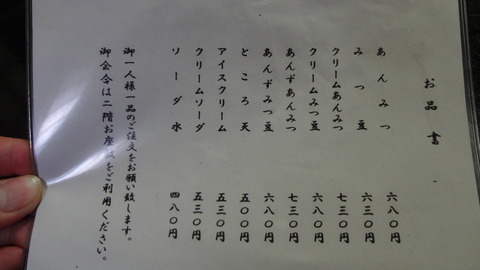 お品書
あんみつ 六八〇円
みつ豆 六三〇円
クリームあんみつ 七三〇円
クリームみつ豆 六八〇円
あんずあんみつ 七三〇円
あんずみつ豆 六八〇円
ところ天 五〇〇円
アイスクリーム 五三〇円
クリームソーダ 五三〇円
ソーダ水 四八〇円
御一人様一品のご注文をお願い致します。
御会合は二階お座敷をご利用ください。